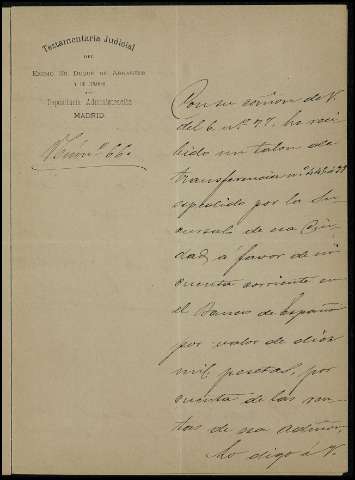 Testamentaría Judicial
DEL
EXCMO SR. DUQUE DE ABRANTES
Y DE LINARES
Depositaría Administración
MADRID
Núm.º 66.
Con su comon de V.
del 6 nº 77. he reci-
bido un talon de
transferencia nº
expedido por la Su-
cursal de esa Ciu-
dad, á favor de mi
cuenta corriente en
el Banco de España
por valor de diez
mil pesetas, por
cuenta de las ren-
tas de esa admon.
Lo digo á V.